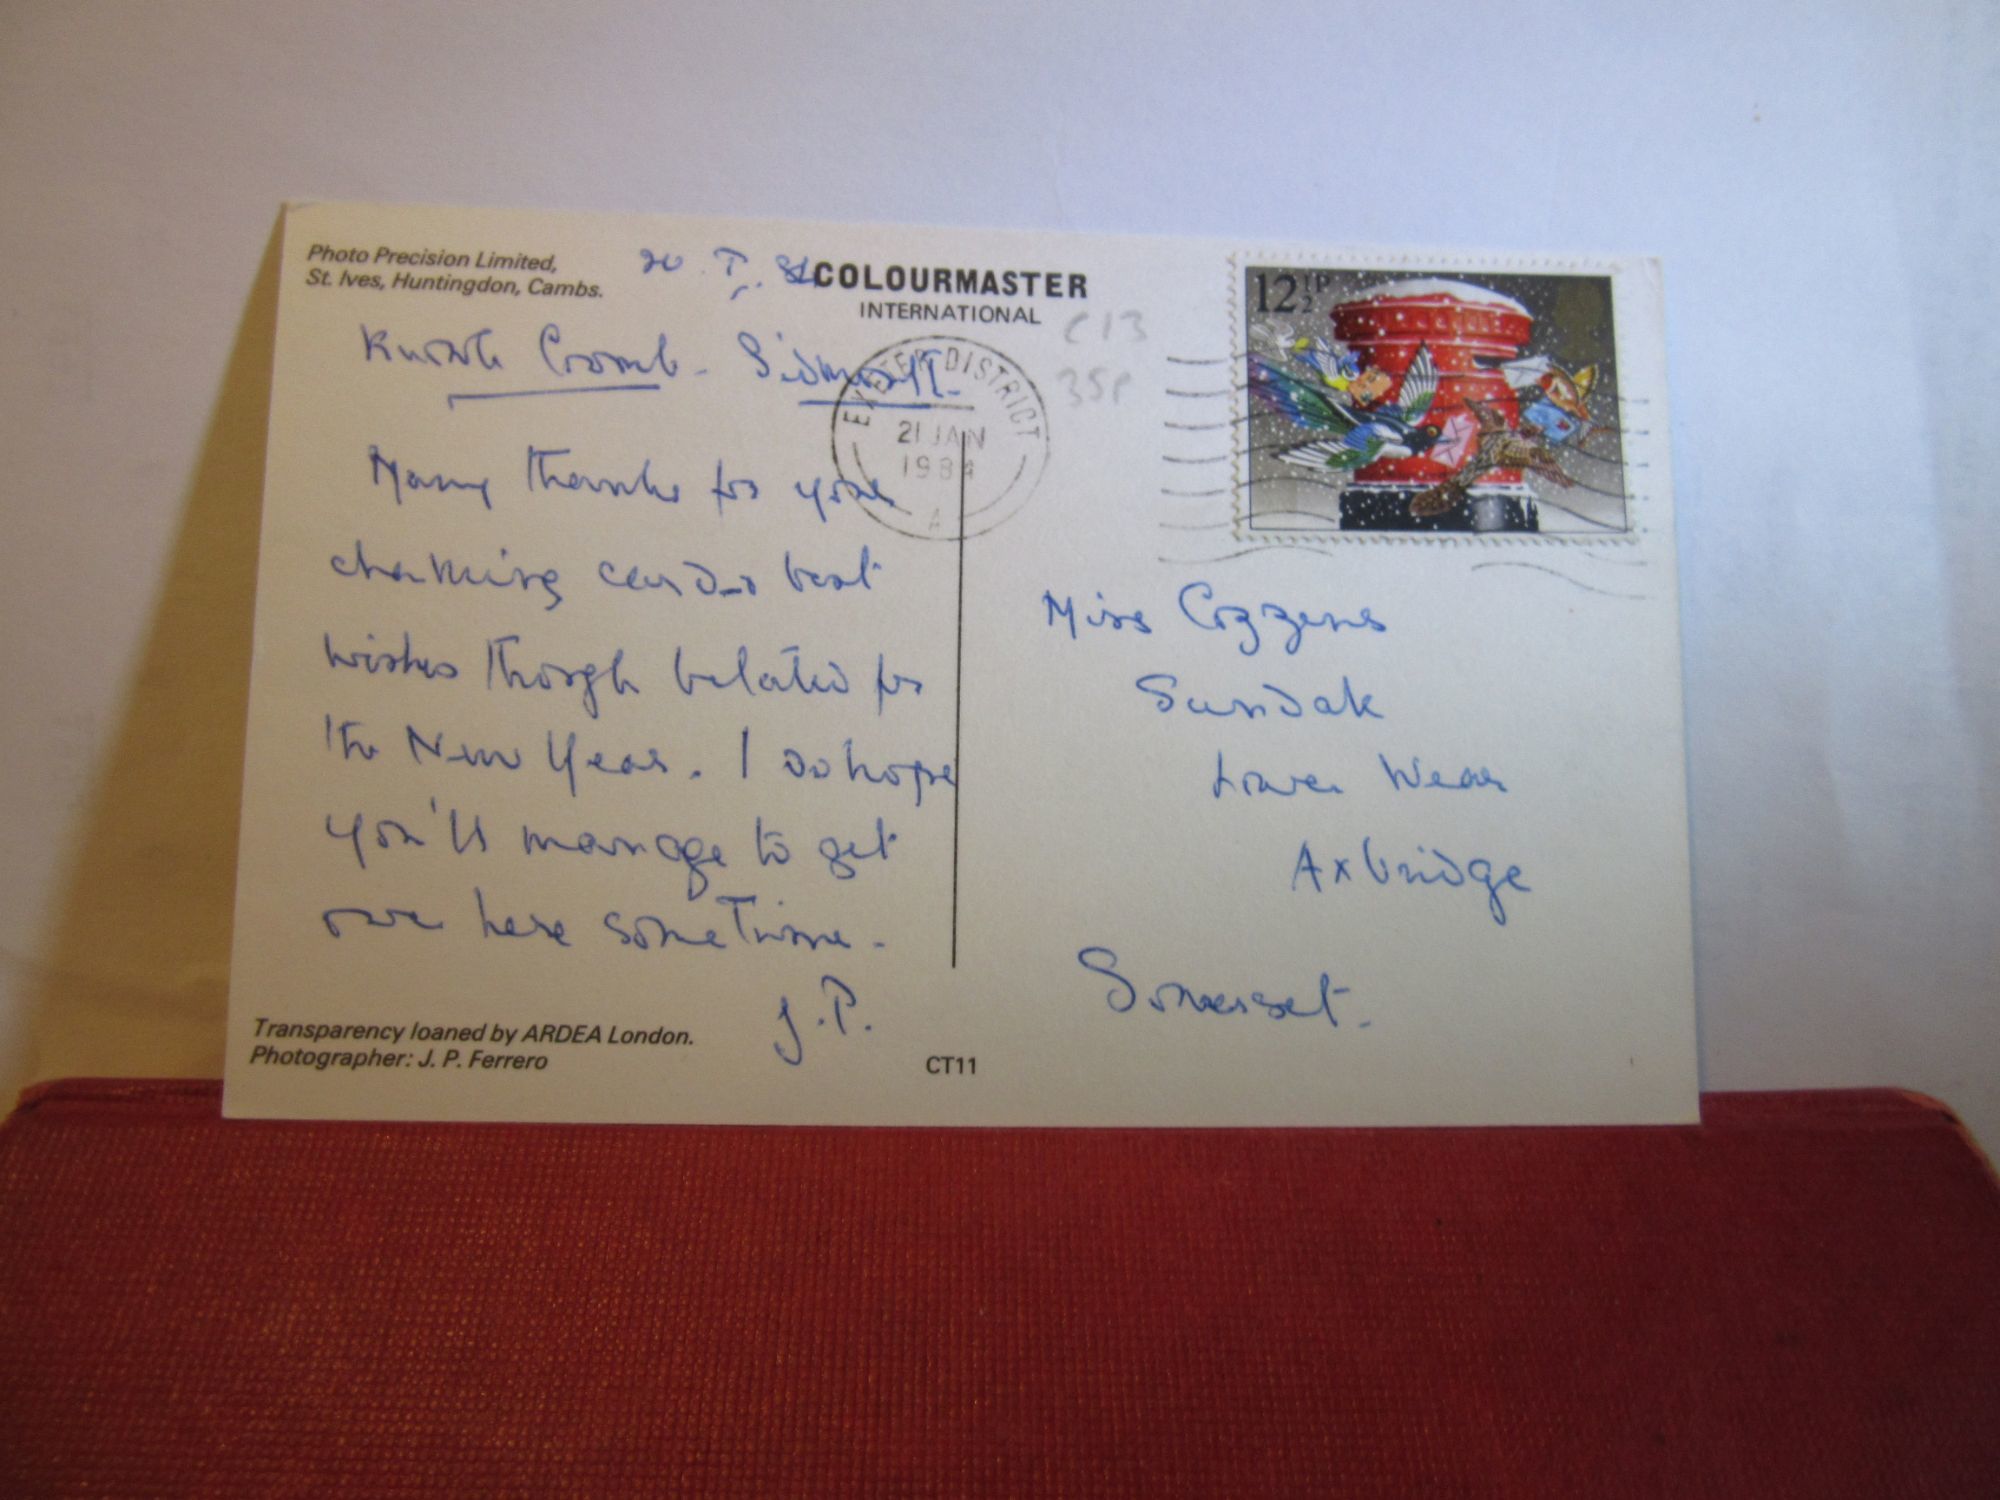 Photo Precision Limited,
St. Ives, Huntingdon, Cambs.
20. I. 84
COLOURMASTER
INTERNATIONAL
C13
35P
12½P
EXETER DISTRICT
21 JAN
1984
A
Sidmouth.
Many thanks for your
charming card & best
wishes though belated for
the New Year. I do hope
you'll manage to get
over here sometime.
J.P.
Miss Cozzens
Sundak
Lower Wear
Axbridge
Somerset.
Transparency loaned by ARDEA London.
Photographer: J. P. Ferrero
CT11